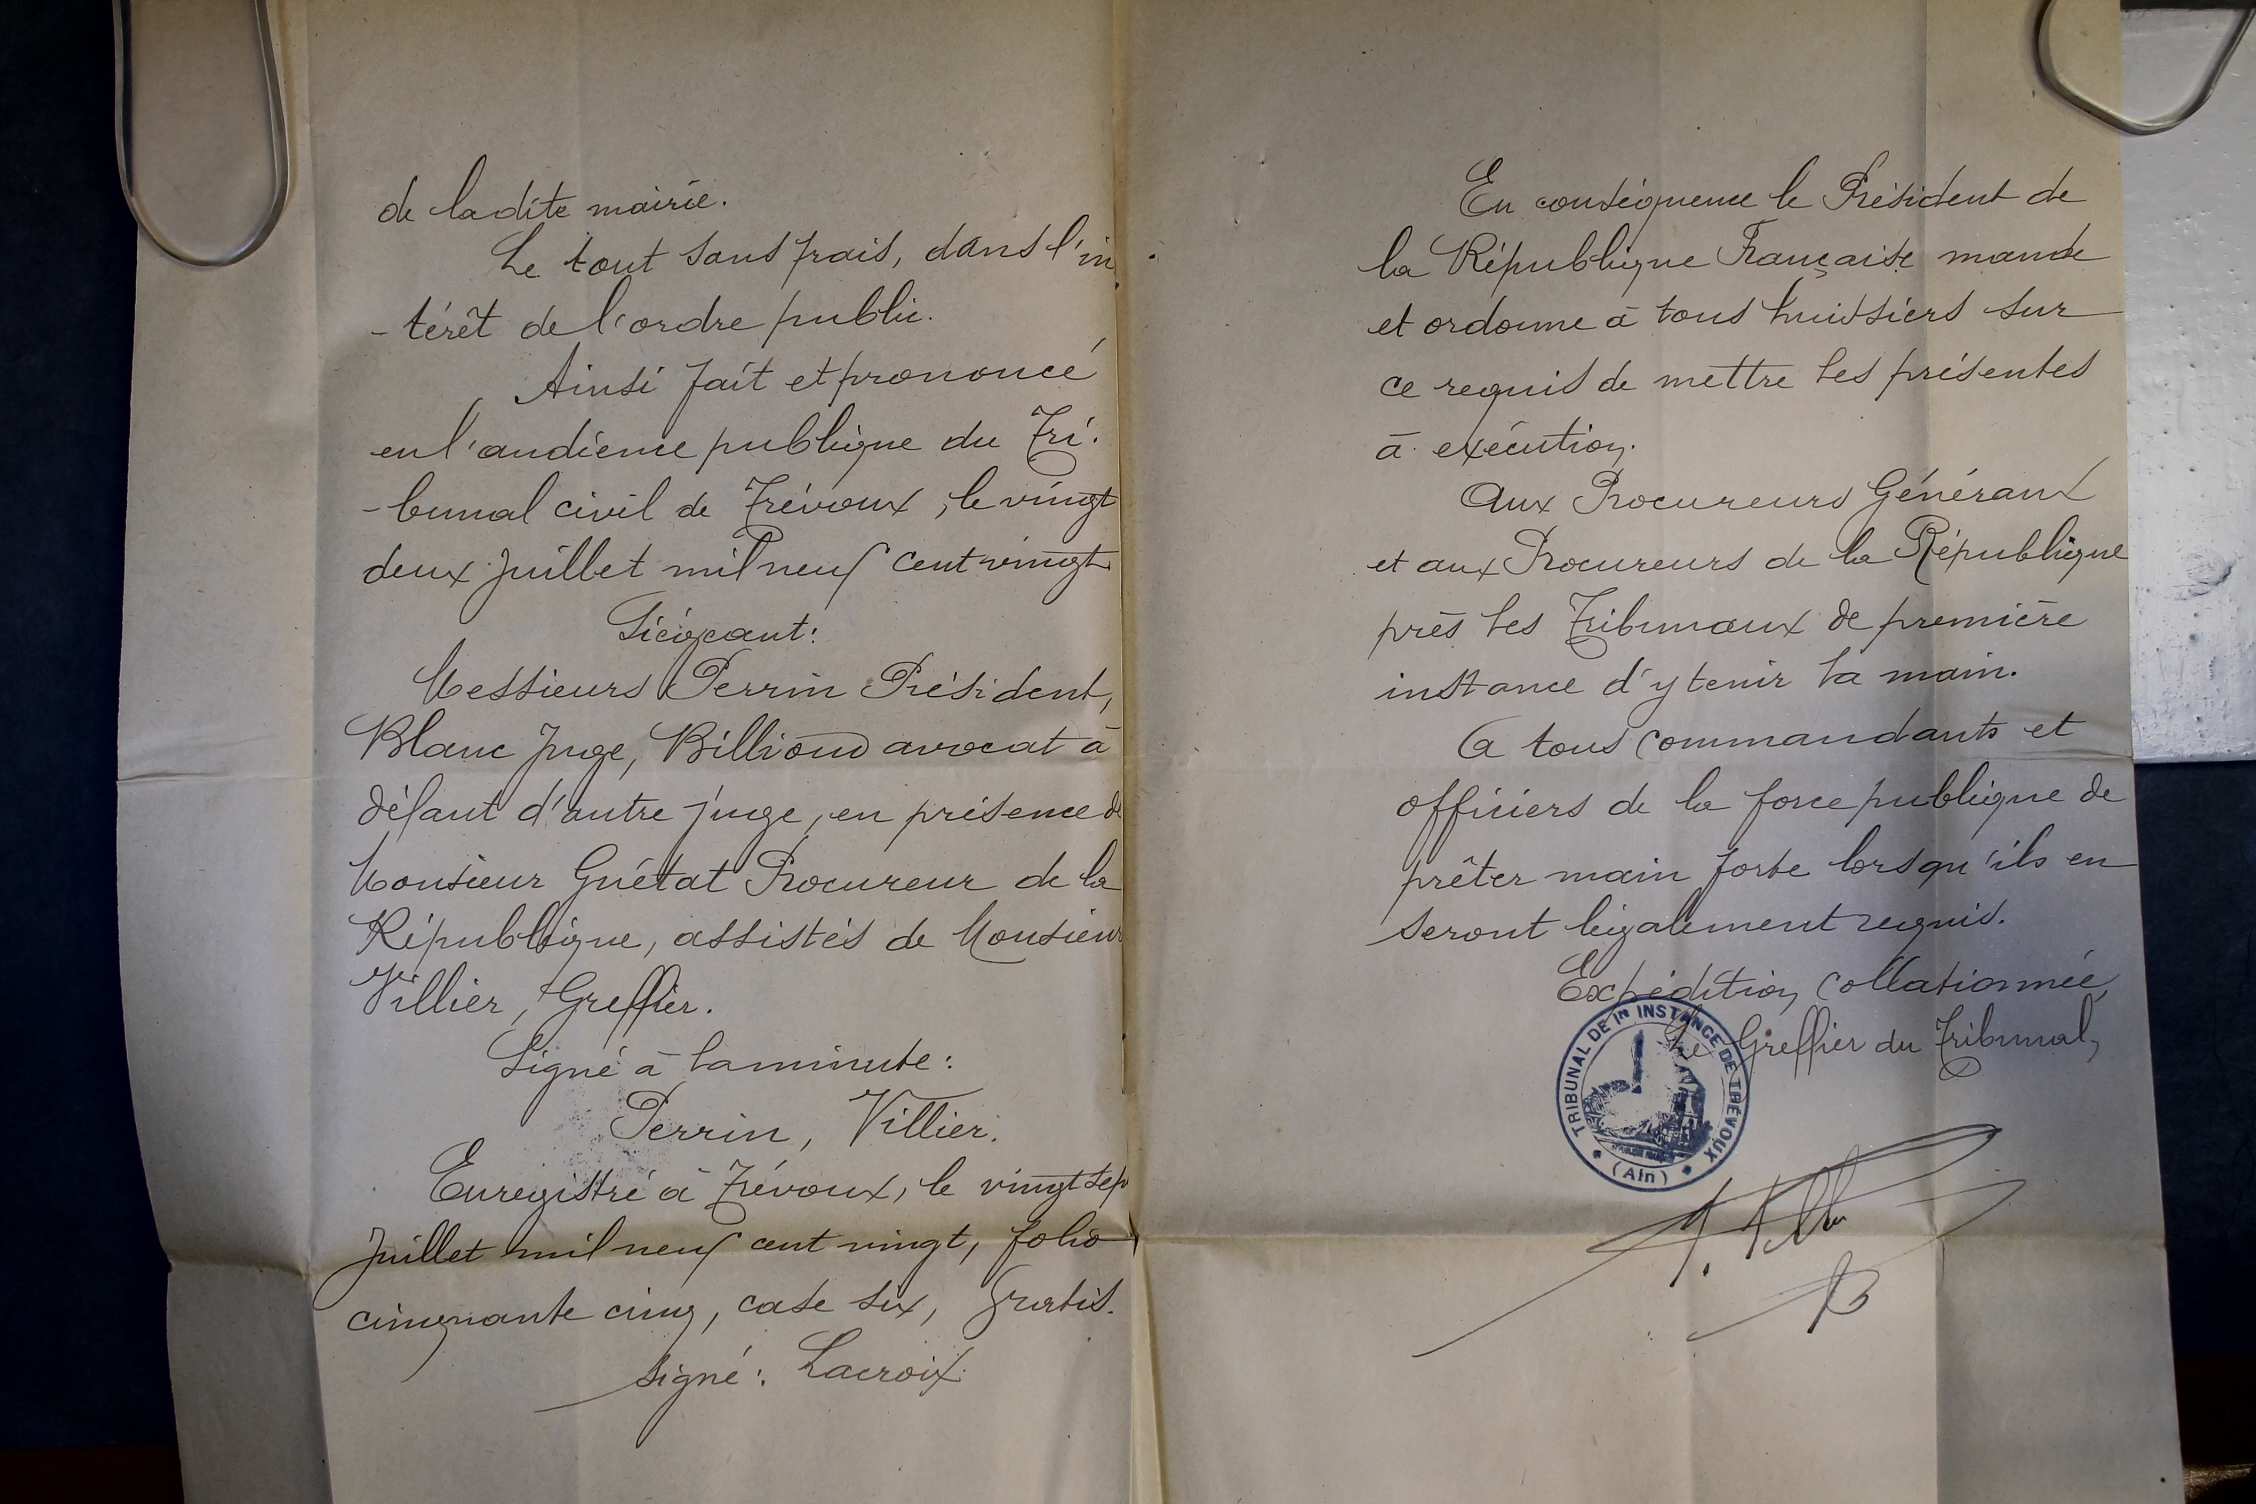 de ladite mairie.
Le tout sans frais, dans l'in
-térêt de l'ordre public.
Ainsi fait et prononcé
en l'audience publique du Tri.
-bunal civil de Trévoux, le vingt
deux Juillet mil neuf cent vingt
Siégeant:
Messieurs Perrin Président,
Blanc Juge, Billioud avocat à
défaut d'autre juge, en présence de
Monsieur Guétat Procureur de la
République, assistés de Monsieur
Villier, Greffier.
Signé à la minute:
Perrin, Villier.
Enregistré à Trévoux, le vingt sept
Juillet mil neuf cent vingt, folio
cinquante cinq, case six, Gratis.
signé: Lacroix
En conséquence le Président de
la République Française mande
et ordonne à tous huissiers sur
ce requis de mettre les présentes
à exécution.
Aux Procureurs Généraux
et aux Procureurs de la République
près les Tribunaux de première
instance d'y tenir la main.
A tous commandants et
officiers de la force publique de
prêter main forte lorsqu'ils en
seront légalement requis.
Expédition collationnée,
Le Greffier du Tribunal,
TRIBUNAL DE 1re INSTANCE DE TRÉVOUX
(AIN)